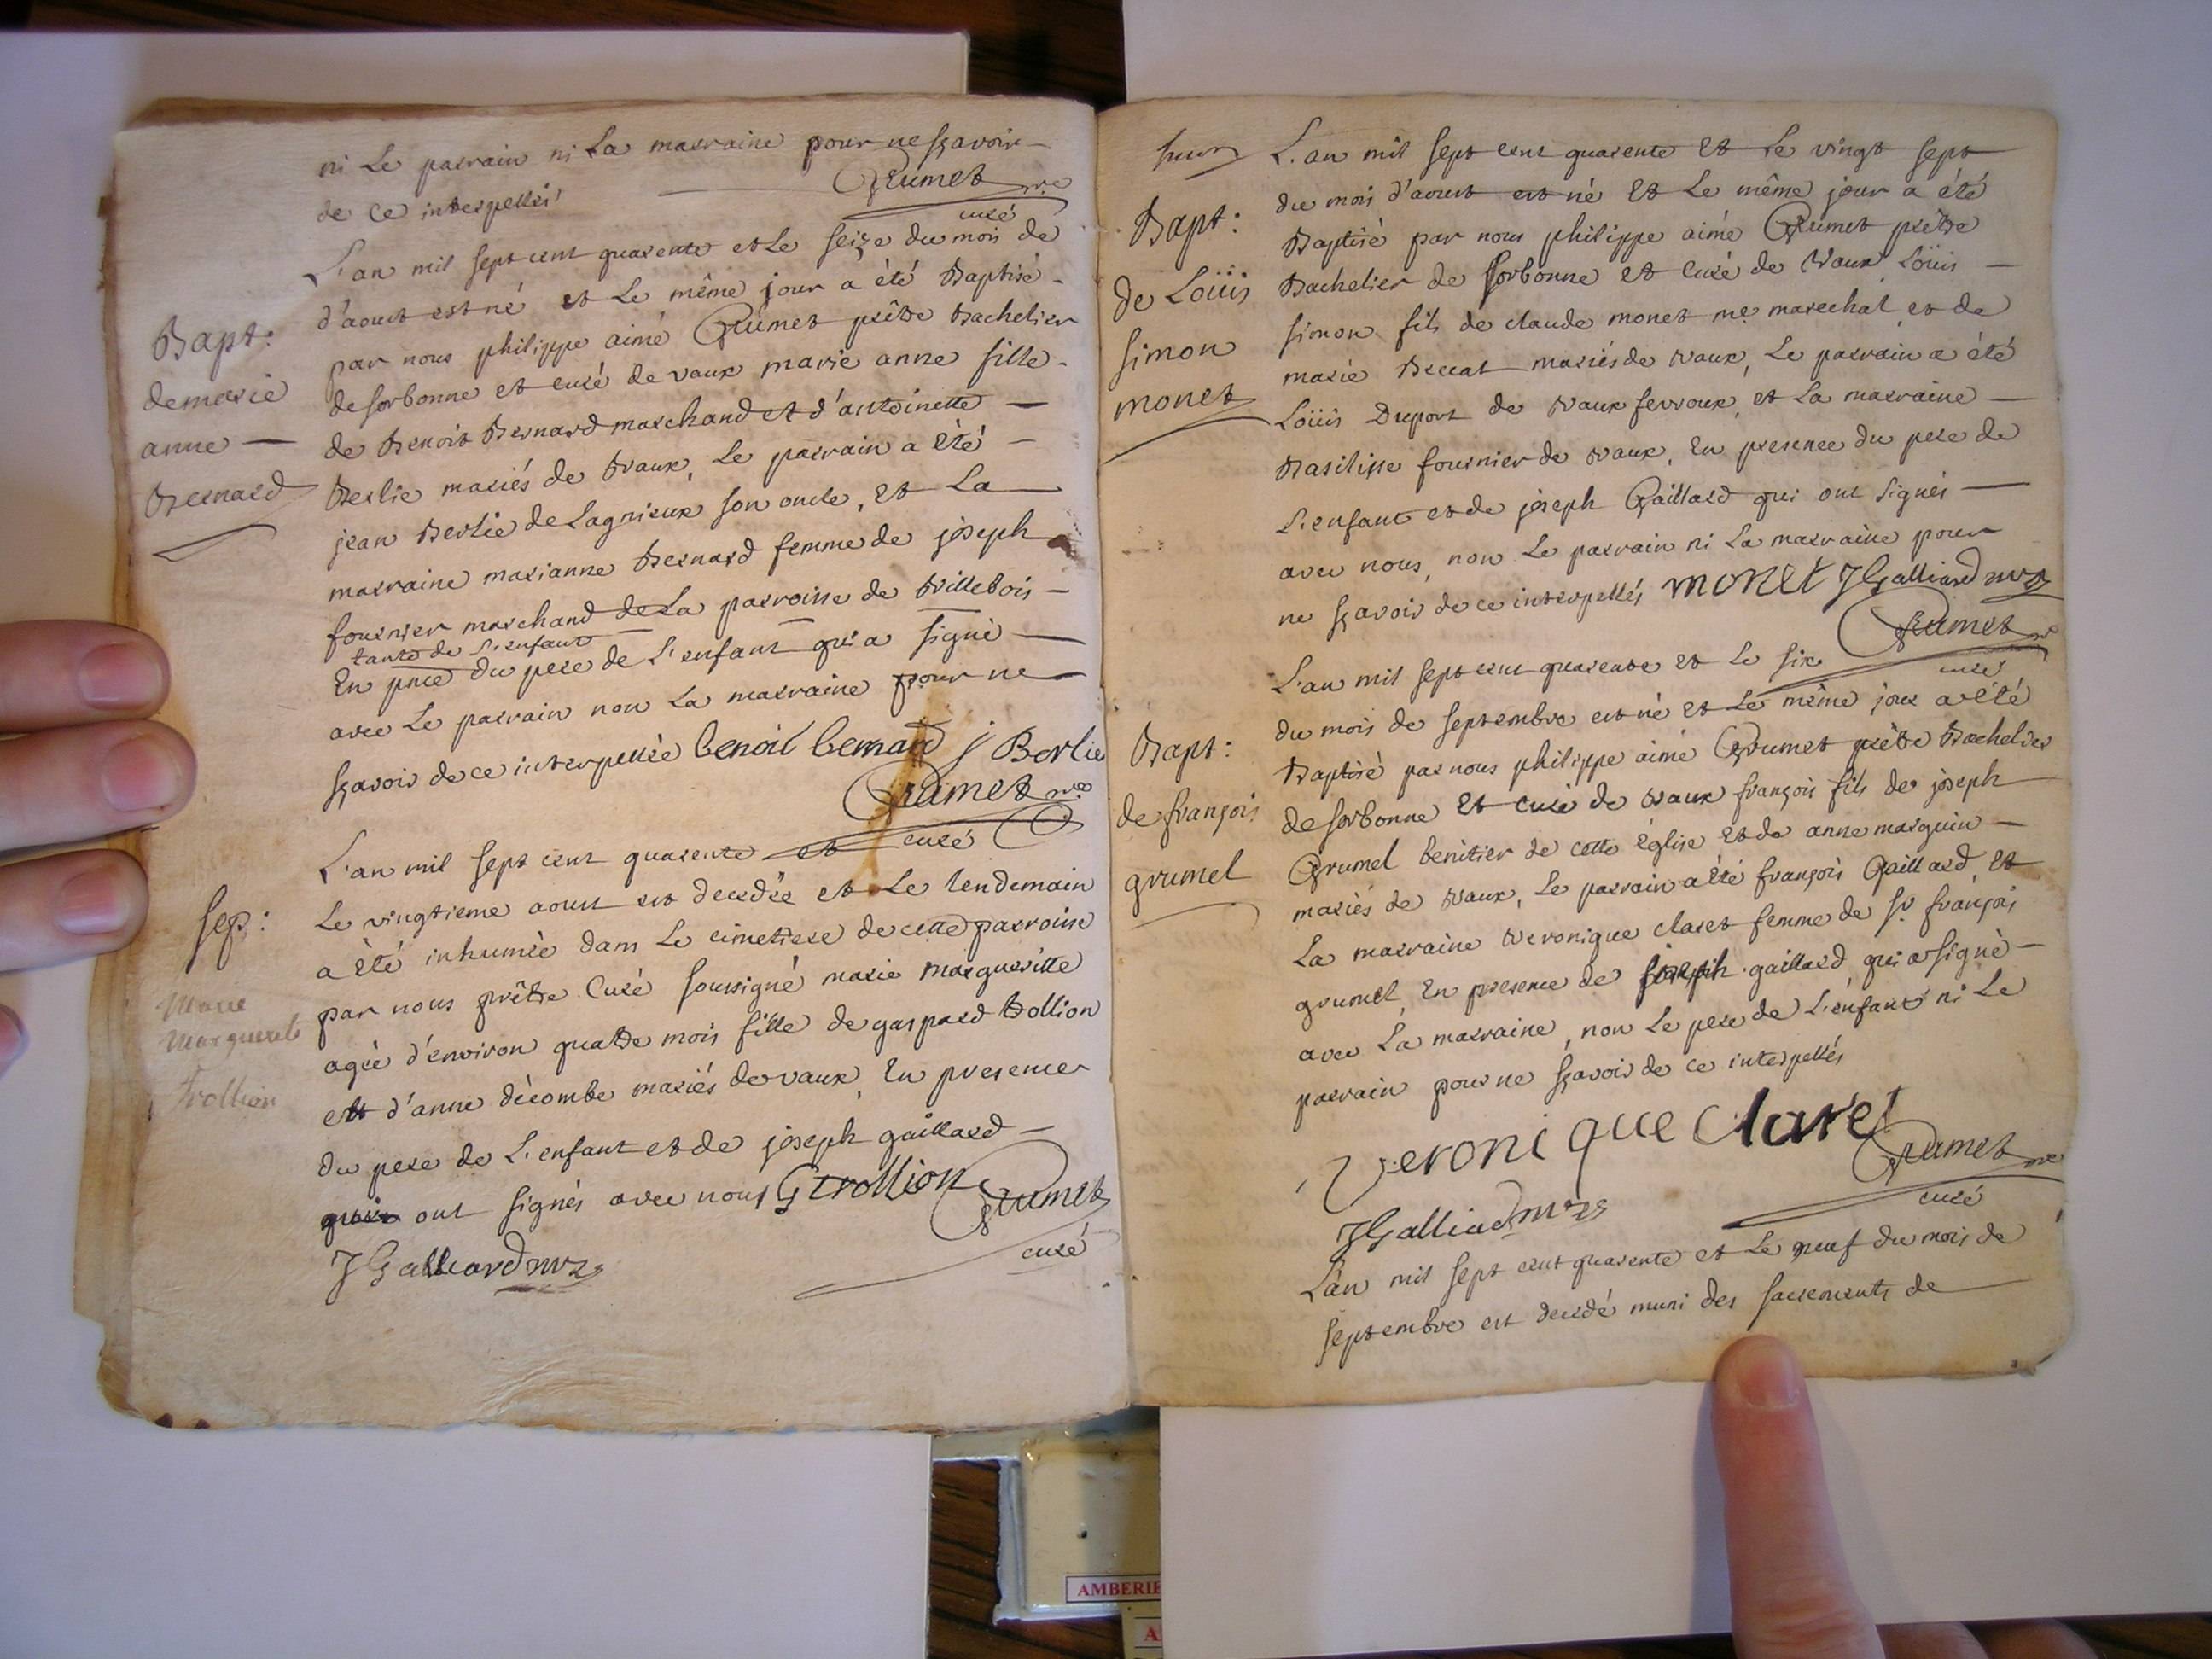 ni Le parrain ni La marraine pour ne sçavoir
de ce interpellés
Grumet
curé
L'an mil sept cent quarente et Le seize du mois de
d'aoust est né et Le même jour a été Baptisé
par nous philippe aimé Grumet prêtre Bachelier
de sorbonne et curé de vaux marie anne fille
de Benoit Bernard marchand et d'antoinette
Berlie mariés de Vaux, Le parrain a été
jean Berlie de Lagnieux son oncle, et La
marraine marianne Bernard femme de joseph
fournier marchand de La parroisse de Villebois
tante de L'enfant
En pnce du pere de L'enfant qui a signé
avec Le parrain non La marraine pour ne
sçavoir de ce interpellée benoit bernard j Berlie
Grumet
curé
Bapt:
de marie
anne
Bernard
L'an mil sept cent quarente et
Le vingtieme aoust est decedée et Le lendemain
a été inhumée dans Le cimetiere de cette parroisse
par nous prêtre Curé soussigné marie margueritte
agée d'environ quatre mois fille de gaspard trollion
et d'anne décombe mariés de vaux, En presence
du pere de L'enfant et de joseph gaillard
qui ont signés avec nous G trollion Grumet
curé
J Galliard
sep:
Marie
Marguerite
trollion
L'an mil sept cent quarente Et Le vingt sept
du mois d'aoust est né Et Le même jour a été
Baptisé par nous philippe aimé Grumet prêtre
Bachelier de sorbonne et Curé de Vaux Loüis
simon fils de claude monet me marechal et de
marie Breat mariés de vaux, Le parrain a été
Loüis Duport de vaux fevroux, et La marraine
Basilisse fournier de vaux, En presence du pere de
L'enfant et de joseph Gaillard qui ont signés
avec nous, non Le parrain ni La marraine pour
ne sçavoir de ce interpellés monet J Galliard
Grumet
curé
Bapt:
de Loüis
simon
monet
L'an mil sept cent quarente et Le six
du mois de septembre est né Et Le même jour a été
Baptisé par nous philippe aimé Grumet prêtre Bachelier
de sorbonne Et curé de vaux françois fils de joseph
Grumel benitier de cette Eglise Et de anne marguin
mariés de vaux, Le parrain a été françois Gaillard, Et
La marraine Veronique claret femme de sr. françois
grumet, En presence de joseph gaillard qui a signé
avec La marraine, non Le pere de L'enfant ni Le
parrain pour ne sçavoir de ce interpellés
Veronique Claret
Grumet
curé
J Galliard
Bapt:
de françois
grumel
L'an mil sept cent quarente et Le neuf du mois de
septembre est decedé muni des sacrements de
AMBERIE
A